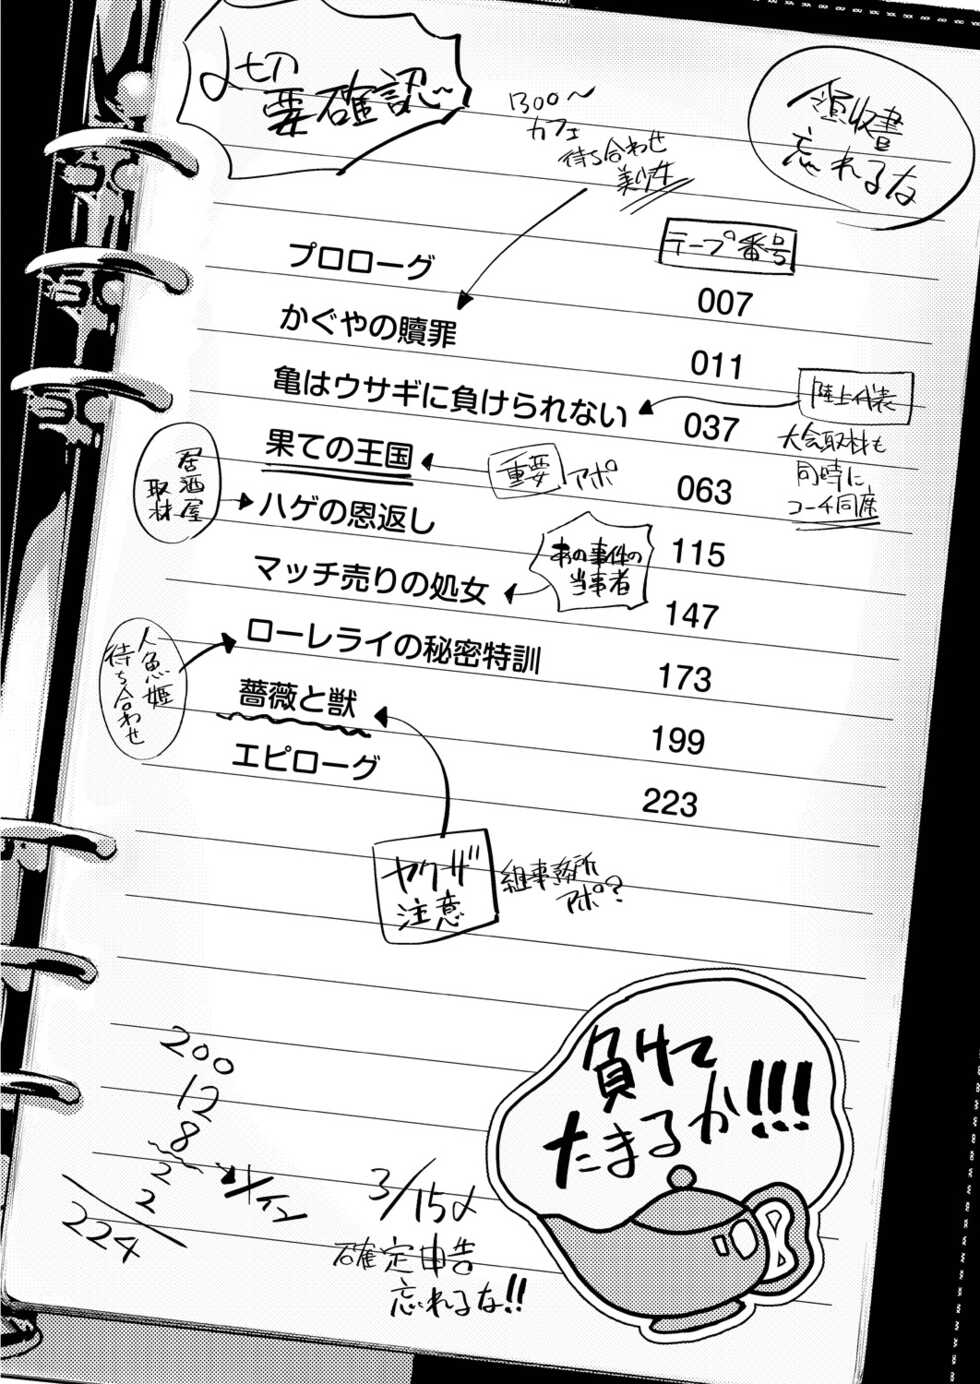 〆切
要確認～
1300～
カフェ
待ち合わせ
美少女
領収書
忘れるな
テープ番号
プロローグ 007
かぐやの贖罪 011
亀はウサギに負けられない 037
陸上代表
大会取材も
同時に
コーチ同座
果ての王国 063
重要 アポ
居酒屋
取材
ハゲの恩返し 115
あの事件の
当事者
マッチ売りの処女 147
人魚姫
待ち合わせ
ローレライの秘密特訓 173
薔薇と獣 199
エピローグ 223
ヤクザ
注意
組事務所
アポ?
200
12
8
2
2
224
3/15〆
確定申告
忘れるな!!
負けて
たまるか!!!